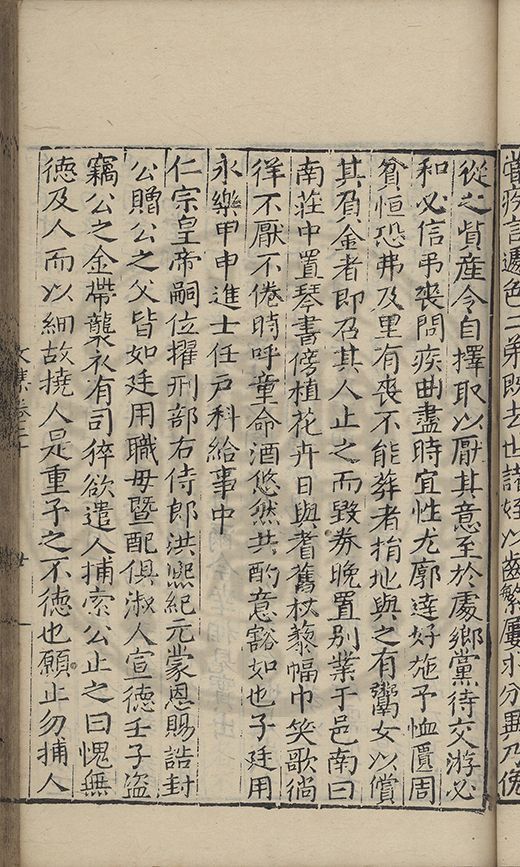 嘗疾言遽色二弟既去世諸姪以齒繁屢求分異乃俛
從之貲產令自擇取以厭其意至於處鄉黨待交游必
和必信弔喪問疾曲盡時宜性尤廓達好施予恤匱周
貧恒恐弗及里有喪不能葬者指地與之有鬻女以償
其負金者即召其人止之而毀券晚置別業于邑南曰
南莊中置琴書傍植花卉日與耆舊杖藜幅巾笑歌徜
徉不厭不倦時呼童命酒悠然共酌意豁如也子廷用
永樂甲申進士任戶科給事中
仁宗皇帝嗣位擢刑部右侍郎洪熙紀元蒙恩賜誥封
公贈公之父皆如廷用職母暨配俱淑人宣德壬子盜
竊公之金帶襲衣有司猝欲遣人捕索公止之曰愧無
德及人而以細故撓人是重予之不德也願止勿捕人
文集卷二十